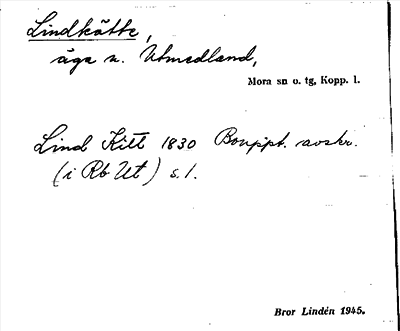 Lindkätte,
äga n. Utmedland,
Mora sn o. tg, Kopp. l.
Lind Kitt 1830 Bouppt. avskr.
(i Rb Ut) s. 1.
Bror Lindén 1945.